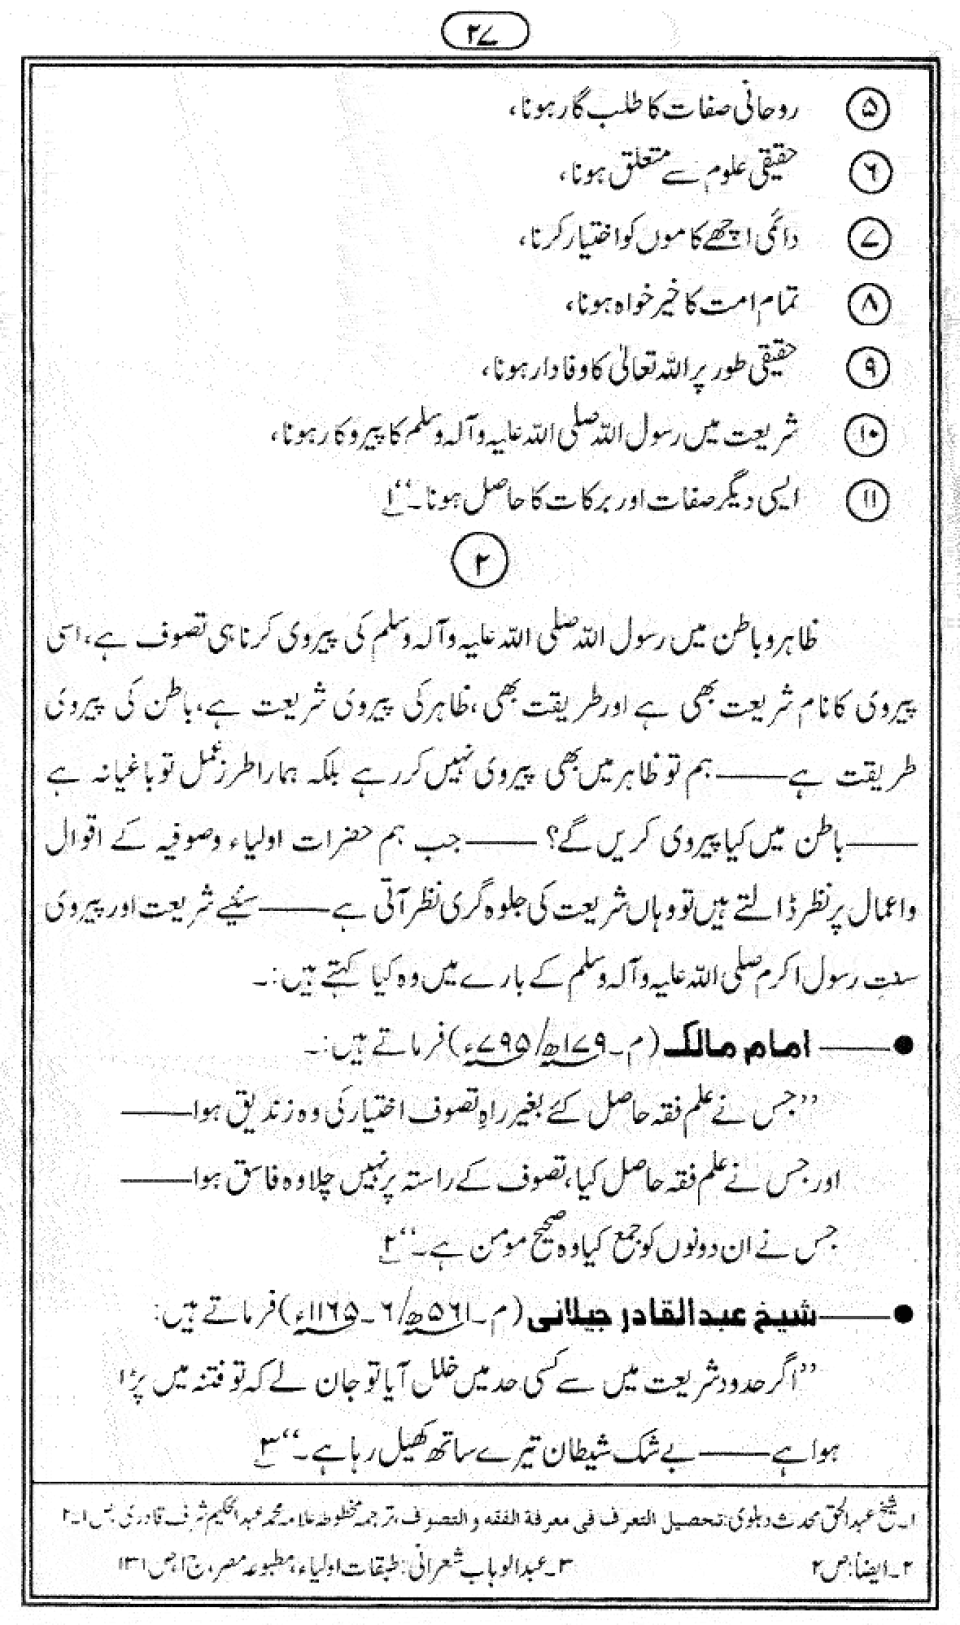 ۲۷
۵ روحانی صفات کا طلب گار ہونا،
۶ حقیقی علوم سے متعلق ہونا،
۷ دائمی اچھے کاموں کو اختیار کرنا،
۸ تمام امت کا خیر خواہ ہونا،
۹ حقیقی طور پر اللہ تعالیٰ کا وفادار ہونا،
۱۰ شریعت میں رسول اللہ صلی اللہ علیہ وآلہ وسلم کا پیروکار ہونا،
۱۱ ایسی دیگر صفات اور برکات کا حاصل ہونا۔‘‘۱
۲
ظاہر و باطن میں رسول اللہ صلی اللہ علیہ وآلہ وسلم کی پیروی کرنا ہی تصوف ہے، اسی
پیروی کا نام شریعت بھی ہے اور طریقت بھی، ظاہر کی پیروی شریعت ہے، باطن کی پیروی
طریقت ہے——ہم تو ظاہر میں بھی پیروی نہیں کر رہے بلکہ ہمارا طرزِ عمل تو باغیانہ ہے
——باطن میں کیا پیروی کریں گے؟ ——جب ہم حضرات اولیاء وصوفیہ کے اقوال
واعمال پر نظر ڈالتے ہیں تو وہاں شریعت کی جلوہ گری نظر آتی ہے——سنیے شریعت اور پیروی
سنتِ رسول اکرم صلی اللہ علیہ وآلہ وسلم کے بارے میں وہ کیا کہتے ہیں:۔
●——امام مالک (م۔۱۷۹ھ/۷۹۵ء) فرماتے ہیں:۔
’’جس نے علم فقہ حاصل کئے بغیر راہِ تصوف اختیار کی وہ زندیق ہوا——
اور جس نے علم فقہ حاصل کیا، تصوف کے راستہ پر نہیں چلا وہ فاسق ہوا——
جس نے ان دونوں کو جمع کیا وہ صحیح مومن ہے۔‘‘۲
●——شیخ عبدالقادر جیلانی (م۔۵۶۱ھ/۶۔۱۱۶۵ء) فرماتے ہیں:
’’اگر حدود شریعت میں سے کسی حد میں خلل آیا تو جان لے کہ تو فتنہ میں پڑا
ہوا ہے——بے شک شیطان تیرے ساتھ کھیل رہا ہے۔‘‘۳
۱۔شیخ عبدالحق محدث دہلوی: تحصیل التعرف فی معرفۃ الفقہ و التصوف، ترجمہ مخطوطہ علامہ محمد عبدالحکیم شرف قادری، ص ۱۔۲
۲۔ایضاً: ص ۲ ۳۔عبدالوہاب شعرانی: طبقات اولیاء، مطبوعہ مصر، ج ۱، ص ۱۳۱